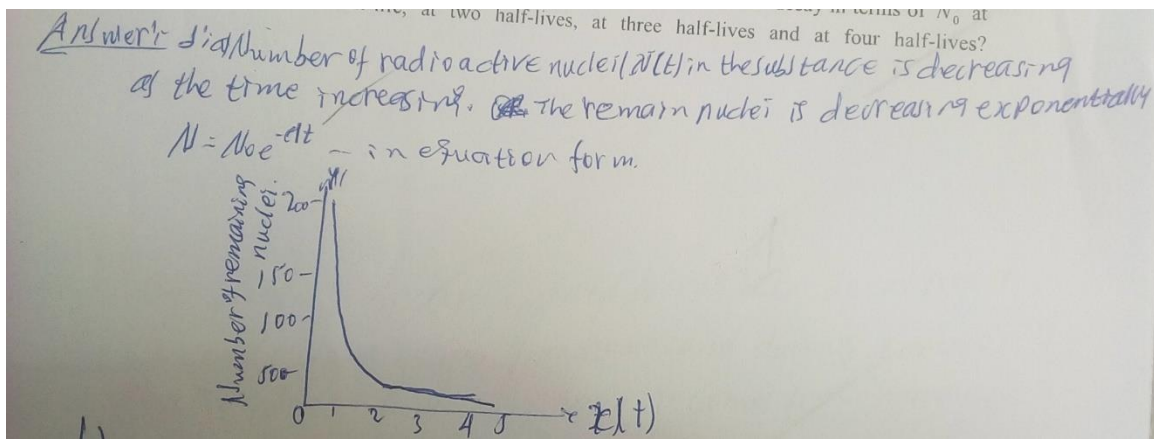 at two half-lives, at three half-lives and at four half-lives?
in terms of N₀ at
Answer:-
Number of radioactive nuclei (N(t) in the substance is decreasing
as the time increasing. The remain nuclei is decreasing exponentially
N = N₀e - in equation form.
Number of remaining
nuclei.
200
150
100
500
0 1 2 3 4 5
(t)